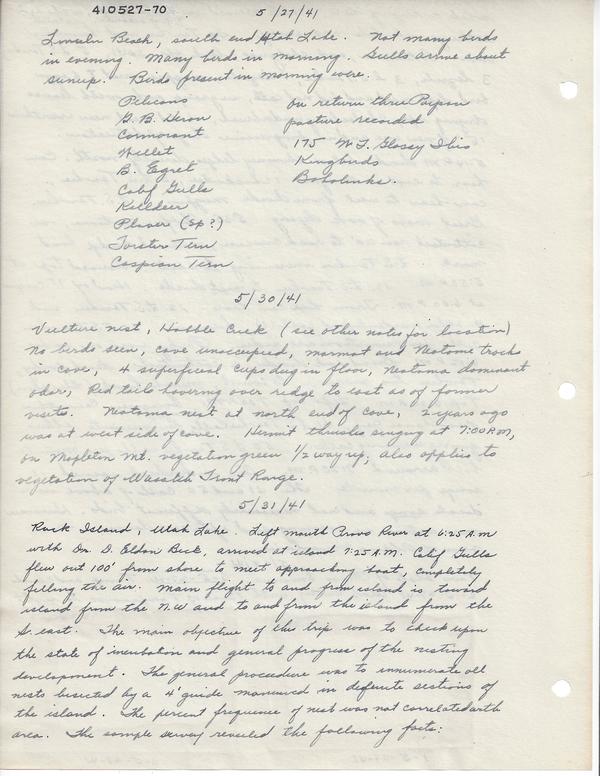 410527-70
5/27/41
Lincoln Beach, south end Utah Lake. Not many birds
in evening. Many birds in morning. Gulls arrive about
sunup. Birds present in morning were.
Pelicans
G. B. Heron
Cormorant
Willet
B. Egret
Calif Gulls
Killdeer
Plover (sp?)
Forster Tern
Caspian Tern
On return thru Payson
pasture recorded
175 W. F. Glossy Ibis
Kingbirds
Bobolinks.
5/30/41
Vulture nest, Hobble Creek (see other notes for location)
No birds seen, cave unoccupied, marmot and Neotoma tracks
in cave, 4 superficial cups dug in floor, Neotoma dominant
odor, Red tails hovering over ridge to east as of former
visits. Neotoma nest at north end of cave, 2 years ago
was at west side of cave. Hermit thrushes singing at 7:00 P.M.,
on Mapleton Mt. vegetation green 1/2 way up; also applies to
vegetation of Wasatch Front Range.
5/31/41
Rock Island, Utah Lake. Left mouth Provo River at 6:25 A.M
with Dr. D. Eldon Beck, arrived at island 7:25 A.M. Calif Gulls
flew out 100' from shore to meet approaching boat, completely
filling the air. Main flight to and from island is toward
island from the N.W and to and from the island from the
S. east. The main objective of this trip was to check upon
the state of incubation and general progress of the nesting
development. The general procedure was to innumerate all
nests bisected by a 4' guide manuvered in definite sections of
the island. The percent frequence of nest was not correlated with
area. The sample survey revealed the following facts: